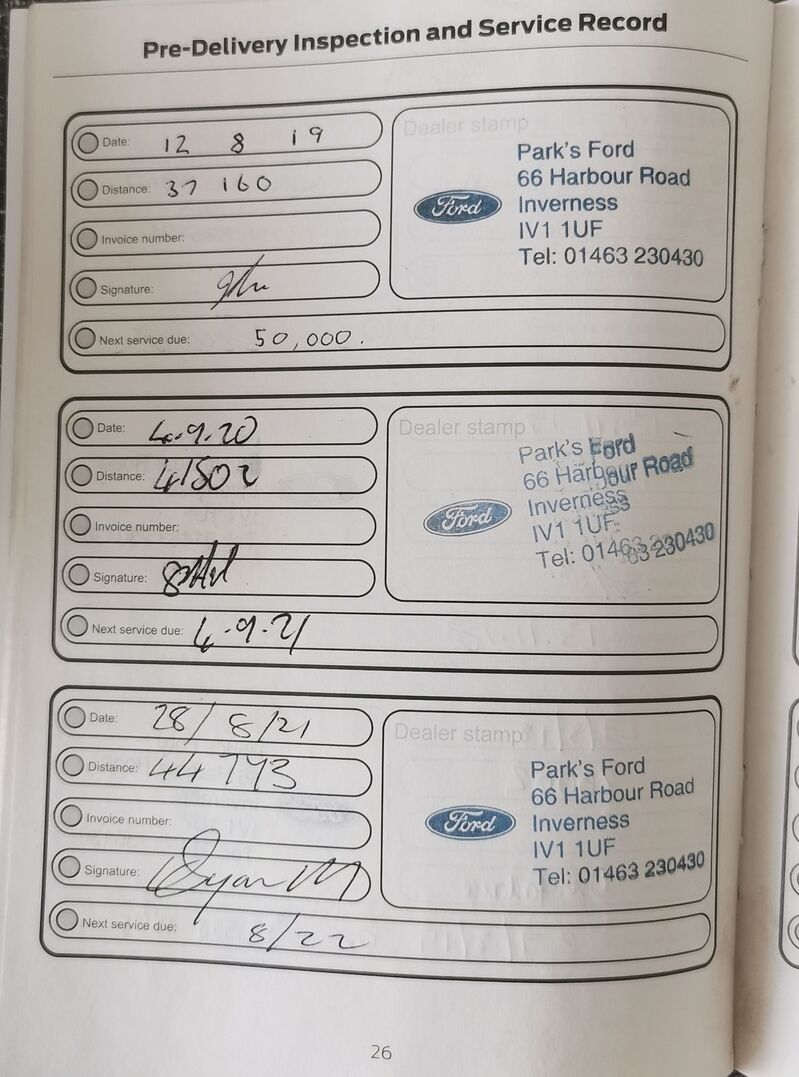 Pre-Delivery Inspection and Service Record
Date: 12 8 19
Distance: 37 160
Invoice number:
Signature:
Next service due: 50,000.
Dealer stamp
Ford
Park's Ford
66 Harbour Road
Inverness
IV1 1UF
Tel: 01463 230430
Date: 4.9.20
Distance: 41502
Invoice number:
Signature:
Next service due: 4.9.21
Dealer stamp
Ford
Park's Ford
66 Harbour Road
Inverness
IV1 1UF
Tel: 01463 230430
Date: 28/8/21
Distance: 44 793
Invoice number:
Signature:
Next service due: 8/22
Dealer stamp
Ford
Park's Ford
66 Harbour Road
Inverness
IV1 1UF
Tel: 01463 230430
26